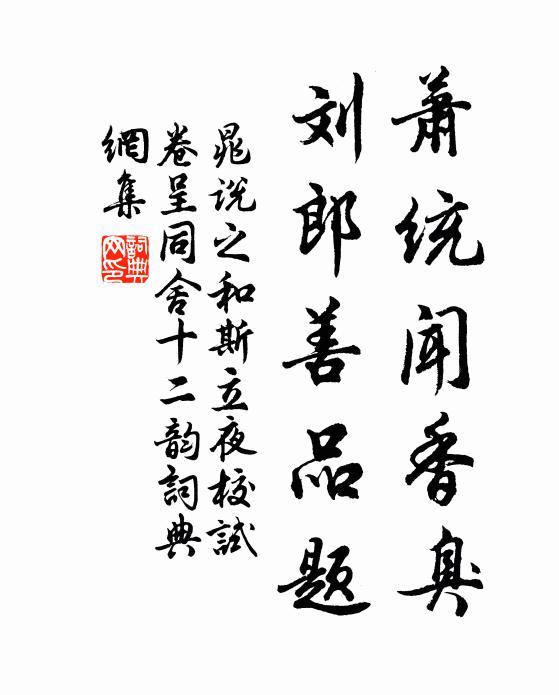 萧统闻香臭
刘郎善品题
晁说之和斯立夜校試
卷呈同舍十二韵詞典
網集
詞典网印